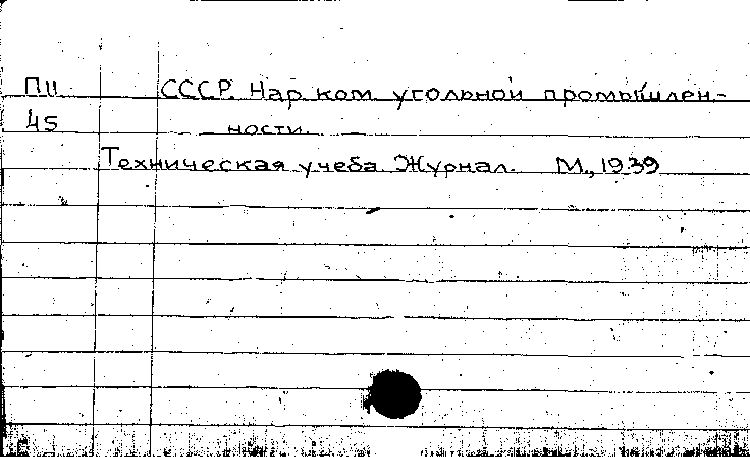 П11 СССР. Нар. ком. угольной промышлен-
45 ности.
Техническая учеба Журнал. М., 1939